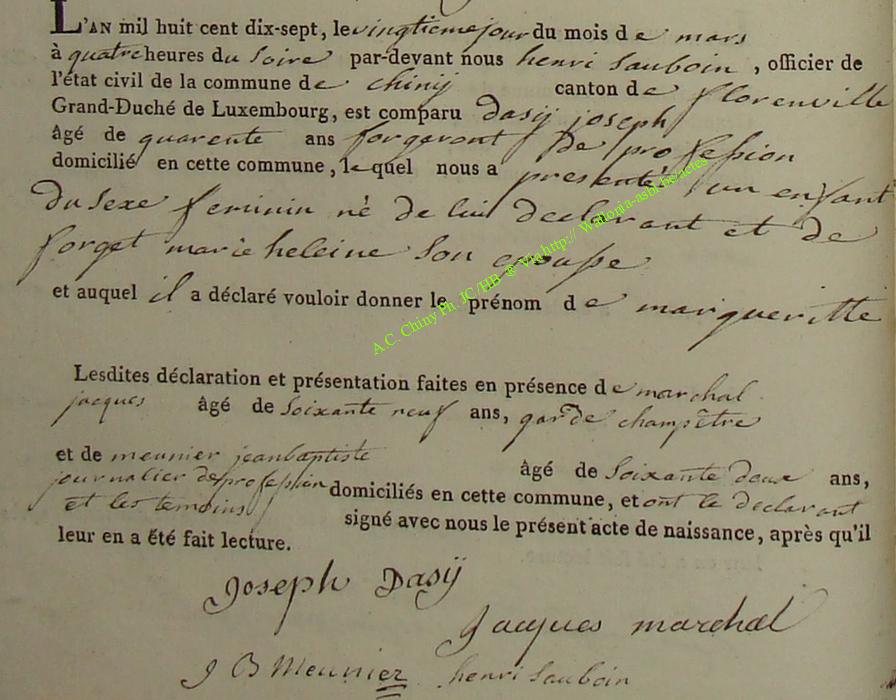 L'AN mil huit cent dix-sept, le vingtieme jour du mois de mars
à quatre heures du soire par-devant nous henri Sauboin, officier de
l'état civil de la commune de chinij canton de florenville
Grand-Duché de Luxembourg, est comparu dasij joseph
âgé de quarente ans forgeront de profession
domicilié en cette commune, lequel nous a presenté un enfant
du sexe feminin né de lui declarant et de
forget marie heleine son epouse
et auquel il a déclaré vouloir donner le prénom de margueritte
A.C. Chiny Ph. JC/HB ® Via http:// Wallonia-asbl.be/actes
Lesdites déclaration et présentation faites en présence de marchal
jacques âgé de Soixante neuf ans, garde champêtre
et de meunier jeanbaptiste âgé de Soixante deux ans,
journalier de profession domiciliés en cette commune, et ont le declarant
et les temoins signé avec nous le présent acte de naissance, après qu'il
leur en a été fait lecture.
Joseph Dasij
Jacques marchal
J B Meunier henri Sauboin